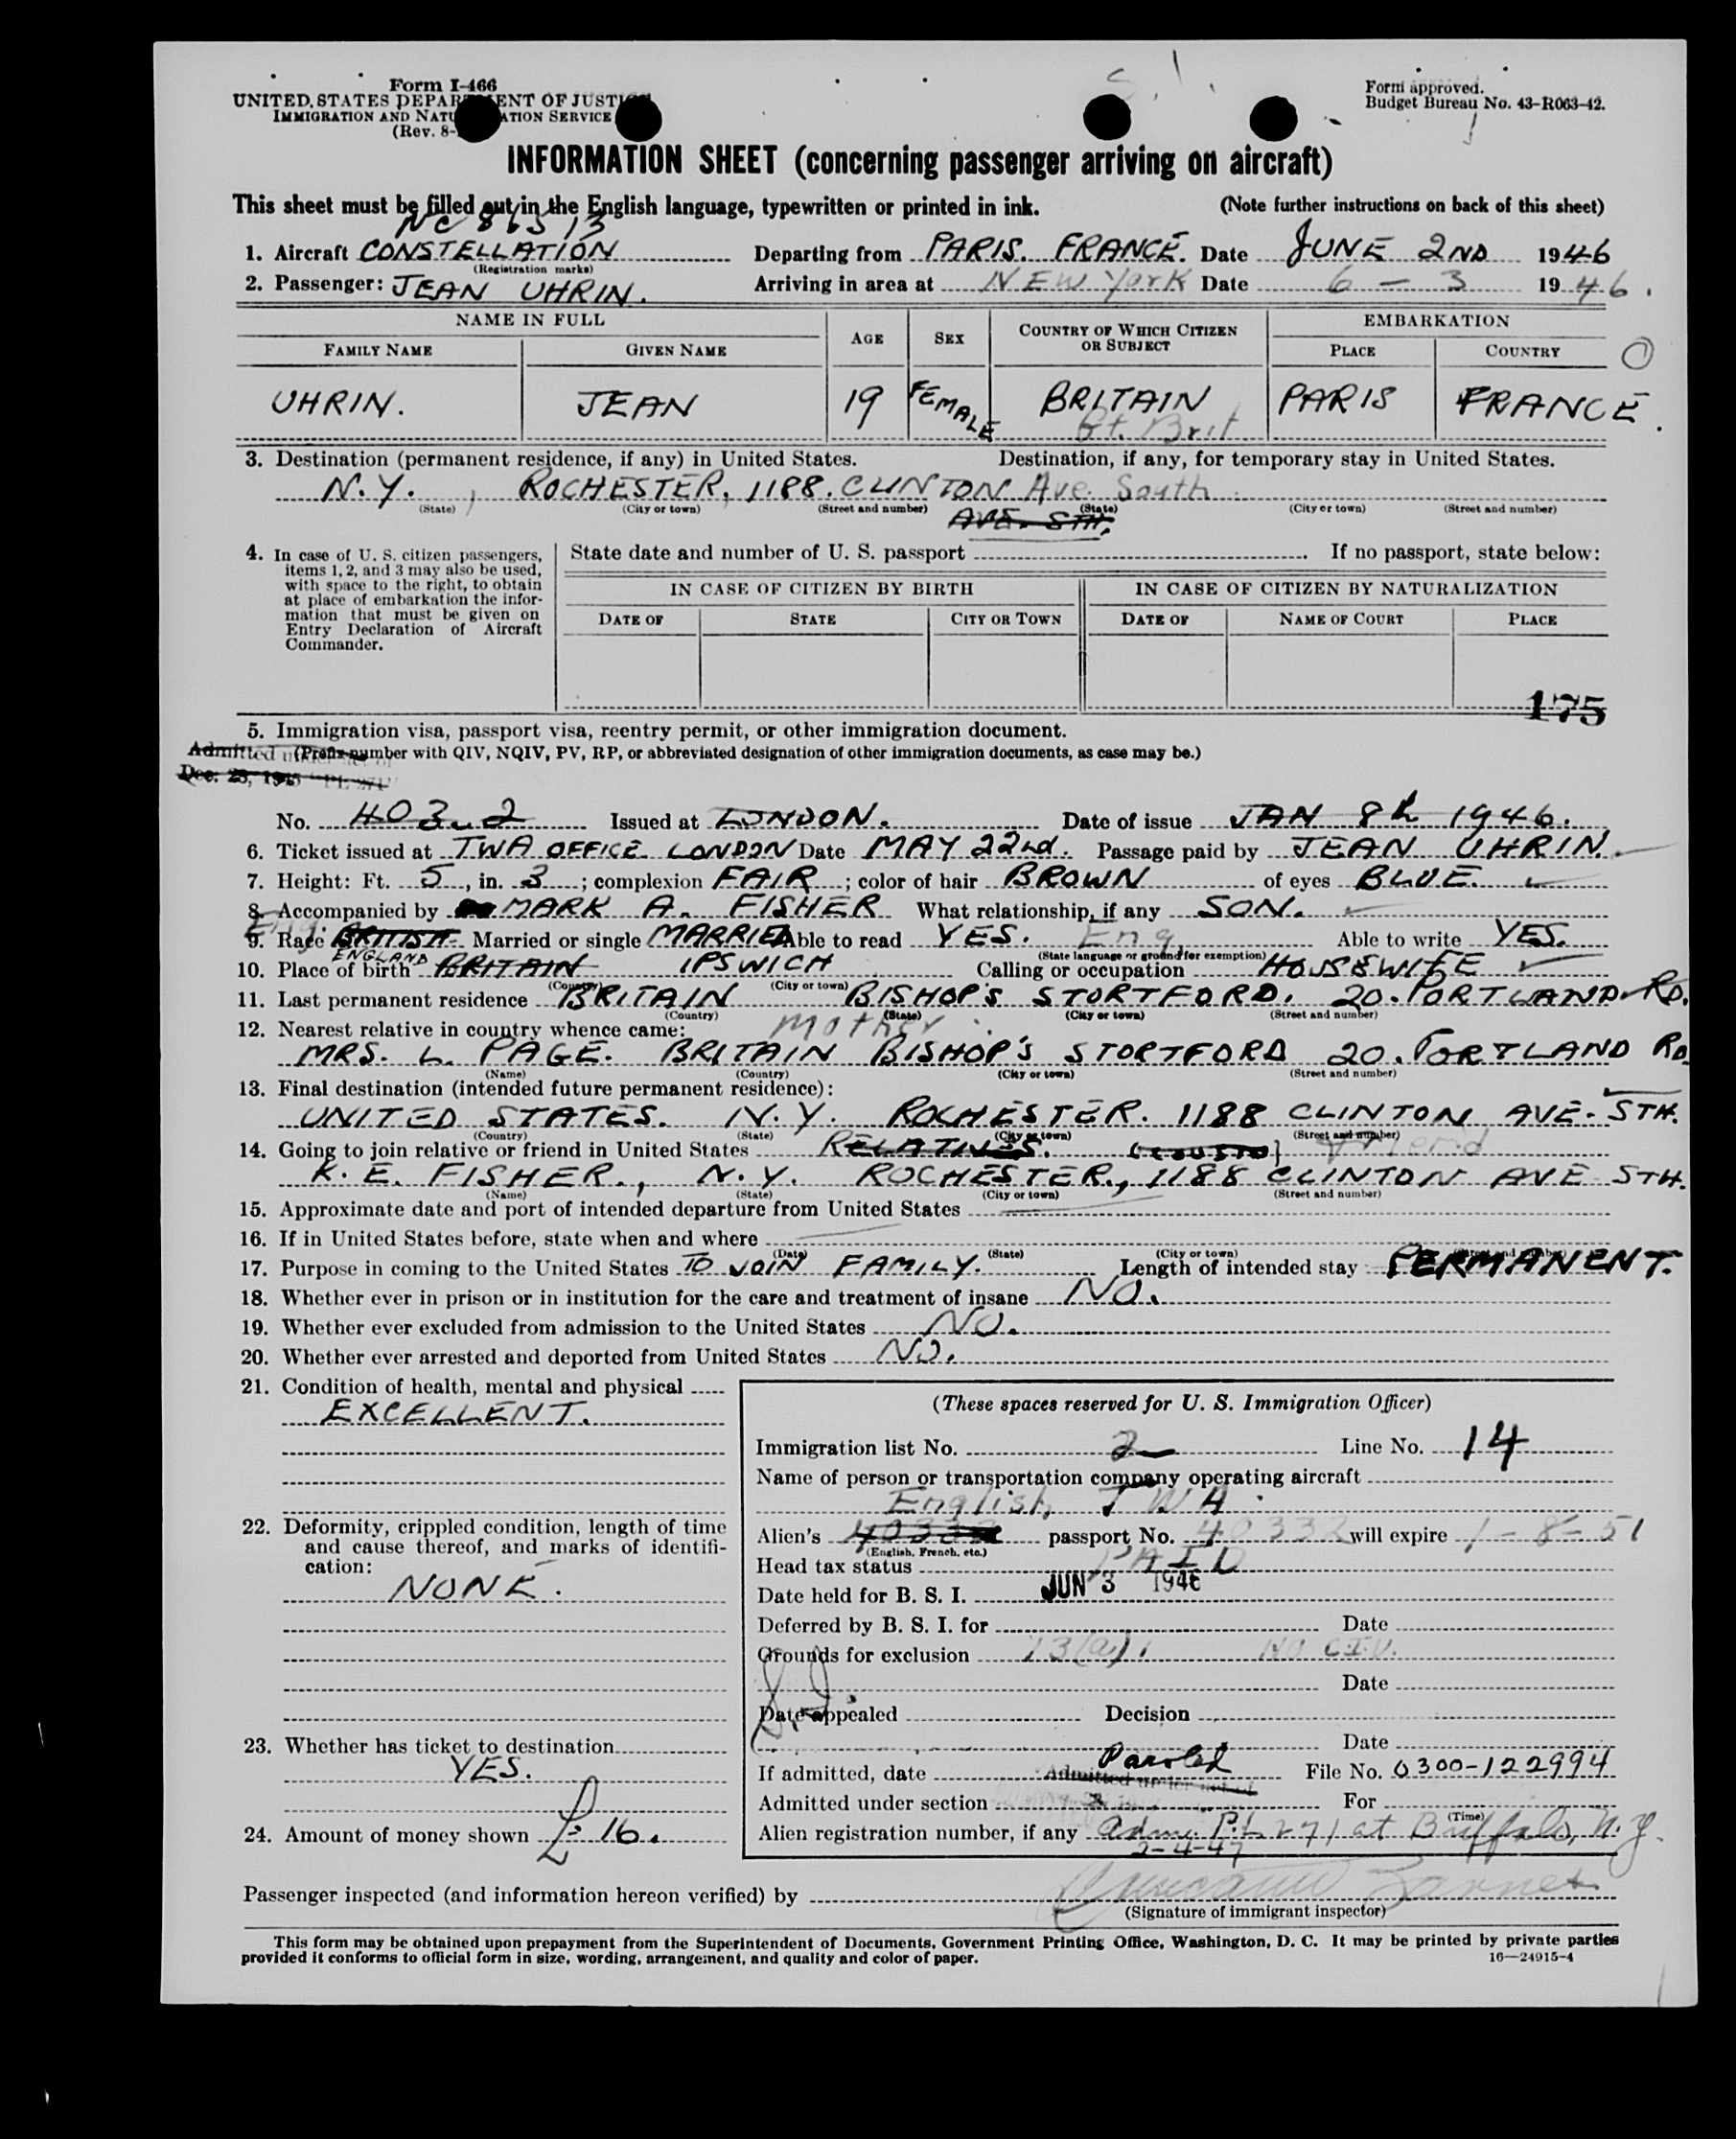 Form I-466
UNITED STATES DEPARTMENT OF JUSTICE
IMMIGRATION AND NATURALIZATION SERVICE
(Rev. 8-
Form approved.
Budget Bureau No. 43-R063-42.
INFORMATION SHEET (concerning passenger arriving on aircraft)
This sheet must be filled out in the English language, typewritten or printed in ink. (Note further instructions on back of this sheet)
NC 86513
1. Aircraft CONSTELLATION Departing from PARIS. FRANCE. Date JUNE 2ND 1946
(Registration marks)
2. Passenger: JEAN UHRIN. Arriving in area at NEW York Date 6 - 3 1946.
NAME IN FULL AGE SEX COUNTRY OF WHICH CITIZEN OR SUBJECT EMBARKATION
FAMILY NAME GIVEN NAME PLACE COUNTRY
UHRIN. JEAN 19 FEMALE BRITAIN PARIS FRANCE.
Gt. Brit
3. Destination (permanent residence, if any) in United States. Destination, if any, for temporary stay in United States.
N.Y. , ROCHESTER, 1188. CLINTON Ave. South
(State) (City or town) (Street and number) (State) (City or town) (Street and number)
AVE. STH.
4. In case of U. S. citizen passengers, items 1, 2, and 3 may also be used, with space to the right, to obtain at place of embarkation the information that must be given on Entry Declaration of Aircraft Commander.
State date and number of U. S. passport . If no passport, state below:
IN CASE OF CITIZEN BY BIRTH IN CASE OF CITIZEN BY NATURALIZATION
DATE OF STATE CITY OR TOWN DATE OF NAME OF COURT PLACE
175
5. Immigration visa, passport visa, reentry permit, or other immigration document.
(Prefix number with QIV, NQIV, PV, RP, or abbreviated designation of other immigration documents, as case may be.)
Admitted under act of
Dec. 28, 1945 PL 271
No. 403.2 Issued at LONDON. Date of issue JAN 8th 1946.
6. Ticket issued at TWA OFFICE LONDON Date MAY 22nd. Passage paid by JEAN UHRIN.
7. Height: Ft. 5, in. 3; complexion FAIR; color of hair BROWN of eyes BLUE.
8. Accompanied by MARK A. FISHER What relationship, if any SON.
Eng.
9. Race BRITISH Married or single MARRIED Able to read YES. Eng. Able to write YES.
(State language or ground for exemption)
ENGLAND
10. Place of birth BRITAIN IPSWICH Calling or occupation HOUSEWIFE
(Country) (City or town)
11. Last permanent residence BRITAIN BISHOP'S STORTFORD. 20. PORTLAND RD.
(Country) (State) (City or town) (Street and number)
12. Nearest relative in country whence came: mother
MRS. L. PAGE. BRITAIN BISHOP'S STORTFORD 20. PORTLAND RD.
(Name) (Country) (City or town) (Street and number)
13. Final destination (intended future permanent residence):
UNITED STATES. N.Y. ROCHESTER. 1188 CLINTON AVE. STH.
(Country) (State) (City or town) (Street and number)
14. Going to join relative or friend in United States RELATIVES. friend
K. E. FISHER., N.Y. ROCHESTER., 1188 CLINTON AVE STH.
(Name) (State) (City or town) (Street and number)
15. Approximate date and port of intended departure from United States
16. If in United States before, state when and where
(Date) (State) (City or town) (Street and number)
17. Purpose in coming to the United States TO JOIN FAMILY. Length of intended stay PERMANENT.
18. Whether ever in prison or in institution for the care and treatment of insane NO.
19. Whether ever excluded from admission to the United States NO.
20. Whether ever arrested and deported from United States NO.
21. Condition of health, mental and physical
EXCELLENT.
22. Deformity, crippled condition, length of time and cause thereof, and marks of identification:
NONE.
23. Whether has ticket to destination
YES.
24. Amount of money shown £16.
(These spaces reserved for U. S. Immigration Officer)
Immigration list No. 2 Line No. 14
Name of person or transportation company operating aircraft
English TWA.
Alien's 40332 passport No. 40332 will expire 1-8-51
(English, French, etc.)
Head tax status PAID
Date held for B. S. I. JUN 3 1946
Deferred by B. S. I. for Date
Grounds for exclusion 13(a)1 NO C.I.V.
Date
Date appealed Decision
Date
If admitted, date Paroled File No. 0300-122994
Admitted under
Admitted under section For
(Time)
Alien registration number, if any adm. P.L 271 at Buffalo, N.Y.
2-4-47
Passenger inspected (and information hereon verified) by
(Signature of immigrant inspector)
This form may be obtained upon prepayment from the Superintendent of Documents, Government Printing Office, Washington, D. C. It may be printed by private parties
provided it conforms to official form in size, wording, arrangement, and quality and color of paper. 16—24915-4